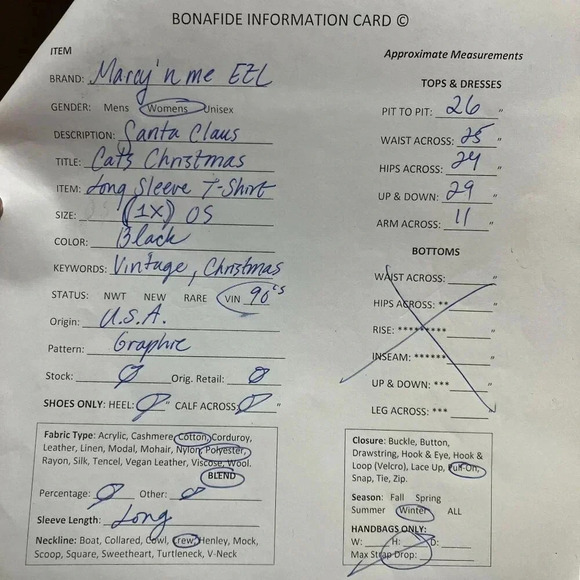 BONAFIDE INFORMATION CARD ©
ITEM
BRAND: Marcy'n me EEL
GENDER: Mens Womens Unisex
DESCRIPTION: Santa Claus
TITLE: Cats Christmas
ITEM: Long Sleeve T-Shirt
SIZE: (1X) OS
COLOR: Black
KEYWORDS: Vintage, Christmas
STATUS: NWT NEW RARE VIN 90's
Origin: U.S.A.
Pattern: Graphic
Stock: Ø Orig. Retail: Ø
SHOES ONLY: HEEL: Ø " CALF ACROSS: Ø "
Fabric Type: Acrylic, Cashmere, Cotton, Corduroy,
Leather, Linen, Modal, Mohair, Nylon, Polyester,
Rayon, Silk, Tencel, Vegan Leather, Viscose, Wool.
BLEND
Percentage: Ø Other: Ø
Sleeve Length: Long
Neckline: Boat, Collared, Cowl, Crew, Henley, Mock,
Scoop, Square, Sweetheart, Turtleneck, V-Neck
Approximate Measurements
TOPS & DRESSES
PIT TO PIT: 26 "
WAIST ACROSS: 25 "
HIPS ACROSS: 24 "
UP & DOWN: 29 "
ARM ACROSS: 11 "
BOTTOMS
WAIST ACROSS: "
HIPS ACROSS: ** "
RISE: ********* "
INSEAM: ****** "
UP & DOWN: *** "
LEG ACROSS: *** "
Closure: Buckle, Button,
Drawstring, Hook & Eye, Hook &
Loop (Velcro), Lace Up, Pull-On,
Snap, Tie, Zip.
Season: Fall Spring
Summer Winter ALL
HANDBAGS ONLY:
W: H: D:
Max Strap Drop: